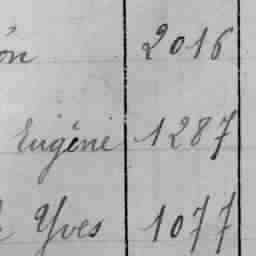 2016
Eugène 1287
Yves 1077